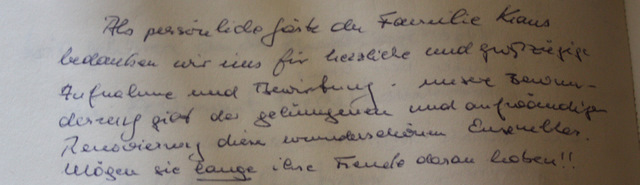 Als persönliche Gäste der Familie Kraus
bedanken wir uns für herzliche und großzügige
Aufnahme und Bewirtung. Unsere Bewun-
derung gilt der gelungenen und aufwändigen
Renovierung dieses wunderschönen Ensembles.
Mögen sie lange ihre Freude daran haben!!